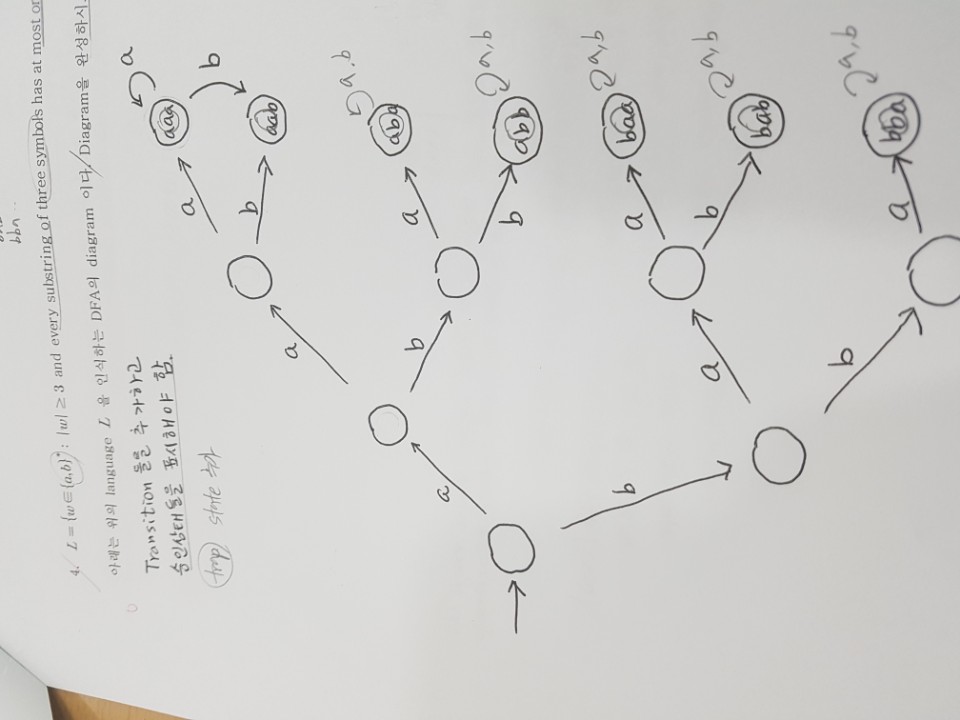 bba ..
4. L = {w∈{a,b}* : |w| ≥ 3 and every substring of three symbols has at most
아래는 위의 language L 을 인식하는 DFA의 diagram 이다. Diagram을 완성하시
Transition 들을 추가하고
승인상태들을 표시해야 함.
state
a
aaa
a
b
b
aab
a
a
aba
a,b
b
b
abb
a,b
a
b
a
a
baa
a,b
b
bab
a,b
b
a
bba
a,b